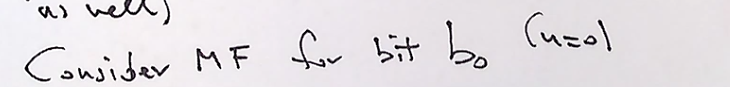 as well)
Consider MF for bit b₀ (n=0)